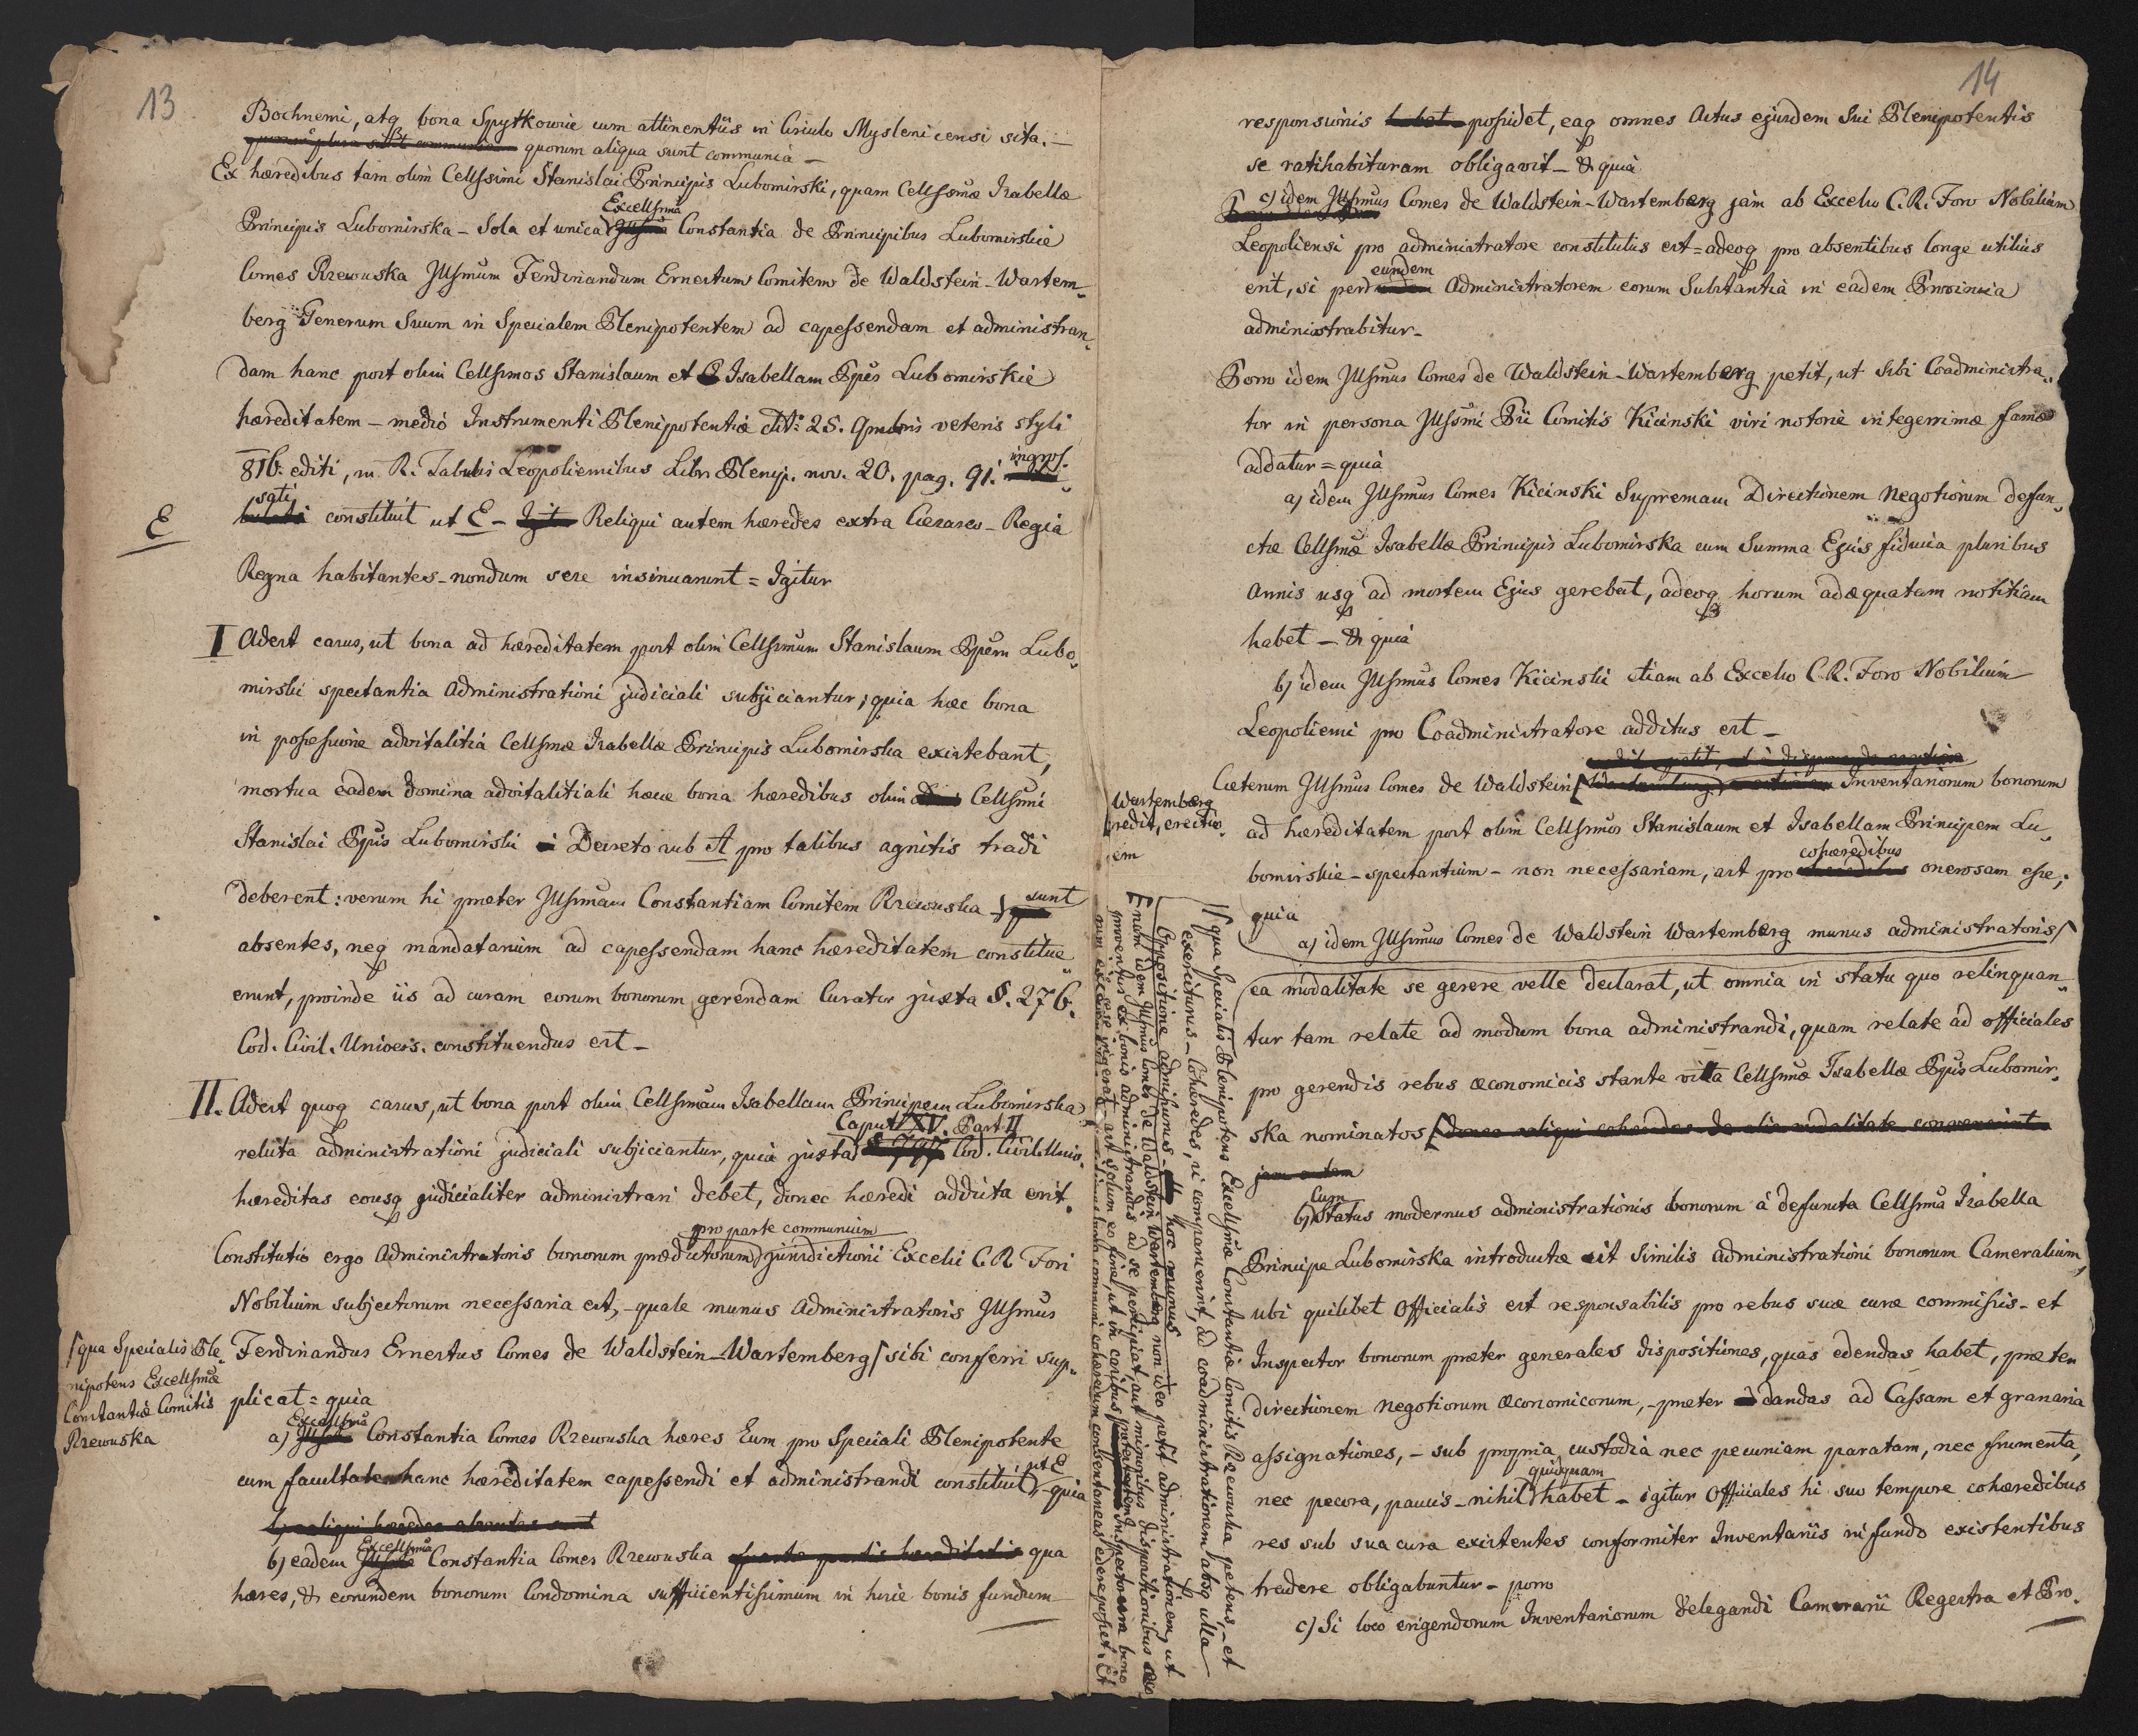 13
Bochnensi, atq bona Spytkowie cum attinentiis in Circulo Myslenicensi sita. —
quorum aliqua sunt communia —
Ex hæredibus tam olim Cellssimi Stanislai Principis Lubomirski, quam Cellssmæ Isabellæ
Excellsma
Principis Lubomirska – Sola et unica Constantia de Principibus Lubomirskie
Comes Rzewuska Jllsmum Ferdinandum Ernestum Comitem de Waldstein-Wartem„
berg Generum Suum in Specialem Plenipotentem ad capessendam et administran„
dam hanc post olim Cellsimos Stanislaum et Isabellam Ppes Lubomirskie
hæreditatem – medio Instrumenti Plenipotentiæ ddto 25. 9mbris veteris styli
816. editi, in R. Tabulis Leopoliensibus Libr. Plenip. nov. 20. pag. 91.
E
constituit ut E – Reliqui autem hæredes extra Cæsareo-Regia
Regna habitantes – nondum sese insinuarunt = Igitur
I Adest casus, ut bona ad hæreditatem post olim Cellsimum Stanislaum Ppem Lubo„
mirski spectantia administrationi judiciali subjiciantur; quia hæc bona
in possessione advitalitia Cellsmæ Isabellæ Principis Lubomirska existebant,
mortua eadem domina advitalitiali hæcce bona hæredibus olim Cellsmi
Stanislai Ppis Lubomirski Decreto sub A pro talibus agnitis tradi
deberent: verum hi præter Jllsmam Constantiam Comitem Rzewuska sunt
absentes, neq mandatarium ad capessendam hanc hæreditatem constitue„
erunt, proinde iis ad curam eorum bonorum gerendam Curator juxta §. 276.
Cod. Civil. Univers. constituendus est –
II. Adest quoq casus, ut bona post olim Cellsmam Isabellam Principem Lubomirska
Caput XV. Part II
relicta administrationi judiciali subjiciantur, quia juxta Cod. Civil. Univ.
hæreditas eousq judicialiter administrari debet, donec hæredi addicta erit.
pro parte communium
Constitutio ergo Administratoris bonorum prædictorum jurisdictioni Excelsi C.R. Fori
Nobilium subjectorum necessaria est, – quale munus Administratoris Jllsmus
Ferdinandus Ernestus Comes de Waldstein-Wartemberg sibi conferri sup„
qua Specialis Ple„
nipotens Excellsmæ
Constantiæ Comitis
Rzewuska
plicat = quia
Excellsma
a) Constantia Comes Rzewuska hæres Eum pro Speciali Plenipotente
cum facultate hanc hæreditatem capessendi et administrandi constituit ut E – quia
b) reliqui hæredes absentes sunt
Excellsma
b) eadem Constantia Comes Rzewuska qua
hæres, & eorundem bonorum Condomina sufficientissimum in hisce bonis fundum
14
responsionis possidet, eaq omnes Actus ejusdem Sui Plenipotentis
se ratihabituram obligavit – & quia
c) idem Jllsmus Comes de Waldstein-Wartemberg jam ab Excelso C.R. Foro Nobilium
Leopoliensi pro administratore constitutus est = adeoq pro absentibus longe utilius
eundem
erit, si per Administratorem eorum Substantia in eadem Provincia
administrabitur –
Porro idem Jllsmus Comes de Waldstein-Wartemberg petit, ut sibi Coadministra„
tor in persona Jllssmi Pii Comitis Kicinski viri notorie integerrimæ famæ
addatur = quia
a) idem Jllsmus Comes Kicinski Supremam Directionem Negotiorum defun„
ctæ Cellsmæ Isabellæ Principis Lubomirska cum Summa Ejus fiducia pluribus
annis usq ad mortem Ejus gerebat, adeoq horum adæquatam notitiam
habet – & quia
b) idem Jllsmus Comes Kicinski etiam ab Excelso C.R. Foro Nobilium
Leopoliensi pro Coadministratore additus est –
Cæterum Jllsmus Comes de Waldstein Inventariorum bonorum
Wartemberg
credit, erectio„
nem
ad hæreditatem post olim Cellsimos Stanislaum et Isabellam Principem Lu„
cohæredibus
bomirskie – spectantium – non necessariam, ast pro onerosam esse;
quia
a) idem Jllsmus Comes de Waldstein Wartemberg munus administratoris
qua Specialis Plenipotens Excellsmæ Constantiæ Comitis Rzewuska petens, – et
exerciturus – Cohæredes, si comparuerint, ad coadministrationem absq ulla
Oppositione admissurus – hoc munus
Enim idem Jllsmus Comes de Waldstein Wartemberg non ideo petit administrationem, ut
proventus ex bonis administrandis ad se percipiat, aut minoribus dispositionibus
ea modalitate se gerere velle declarat, ut omnia in statu quo relinquan„
tur tam relate ad modum bona administrandi, quam relate ad officiales
pro gerendis rebus œconomicis stante vita Cellsmæ Isabellæ Ppis Lubomir„
ska nominatos donec reliqui cohæredes de alia modalitate convenerint
jam autem
Cum
b) Status modernus administrationis bonorum à defuncta Cellsma Isabella
Principe Lubomirska introductæ sit similis administrationi bonorum Cameralium,
ubi quilibet Officialis est responsabilis pro rebus suæ curæ commissis – et
Inspector bonorum præter generales dispositiones, quas edendas habet, præter
directionem negotiorum œconomicorum, – præter dandas ad Cassam et granaria
assignationes, – sub propria custodia nec pecuniam paratam, nec frumenta,
quidquam
nec pecora, paucis – nihil habet – igitur Officiales hi suo tempore cohæredibus
res sub sua cura existentes conformiter Inventariis in fundo existentibus
tradere obligabuntur – porro
c) Si loco erigendorum Inventariorum delegandi Camerarii Regestra et Pro„